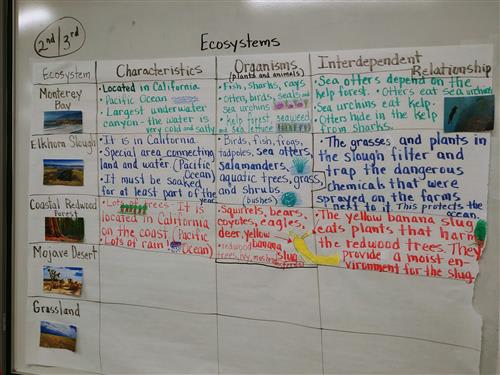 2nd/3rd
Ecosystems
Ecosystem
Characteristics
Organisms
(plants and animals)
Interdependent
Relationship
Monterey
Bay
• Located in California
• Pacific Ocean
• Largest underwater
canyon - the water is
very cold and salty
• Fish, sharks, rays
• Otters, birds, seals and
sea urchins
• kelp forest, seaweed
and sea lettuce
• Sea otters depend on the
kelp forest. • Otters eat sea urchins
• Sea urchins eat kelp.
• Otters hide in the kelp
from sharks.
Elkhorn Slough
• It is in California.
• Special area connecting
land and water (Pacific
Ocean)
• It must be soaked
for at least part of the
year
• Birds, fish, frogs,
tadpoles, sea otters,
Salamanders,
aquatic trees, grass,
and shrubs
(bushes)
• The grasses and plants in
the slough filter and
trap the dangerous
chemicals that were
sprayed on the farms
next to it. This protects the
ocean.
Coastal Redwood
Forest
• Lots of trees - It is
located in California
on the coast (Pacific
Ocean)
• Lots of rain!
Squirrels, bears,
coyotes, eagles,
deer, yellow
banana
slug
• redwood
trees, ivy,
The yellow banana slug
eats plants that harm
the redwood trees. They
provide a moist en-
vironment for the slug.
Mojave Desert
Grassland